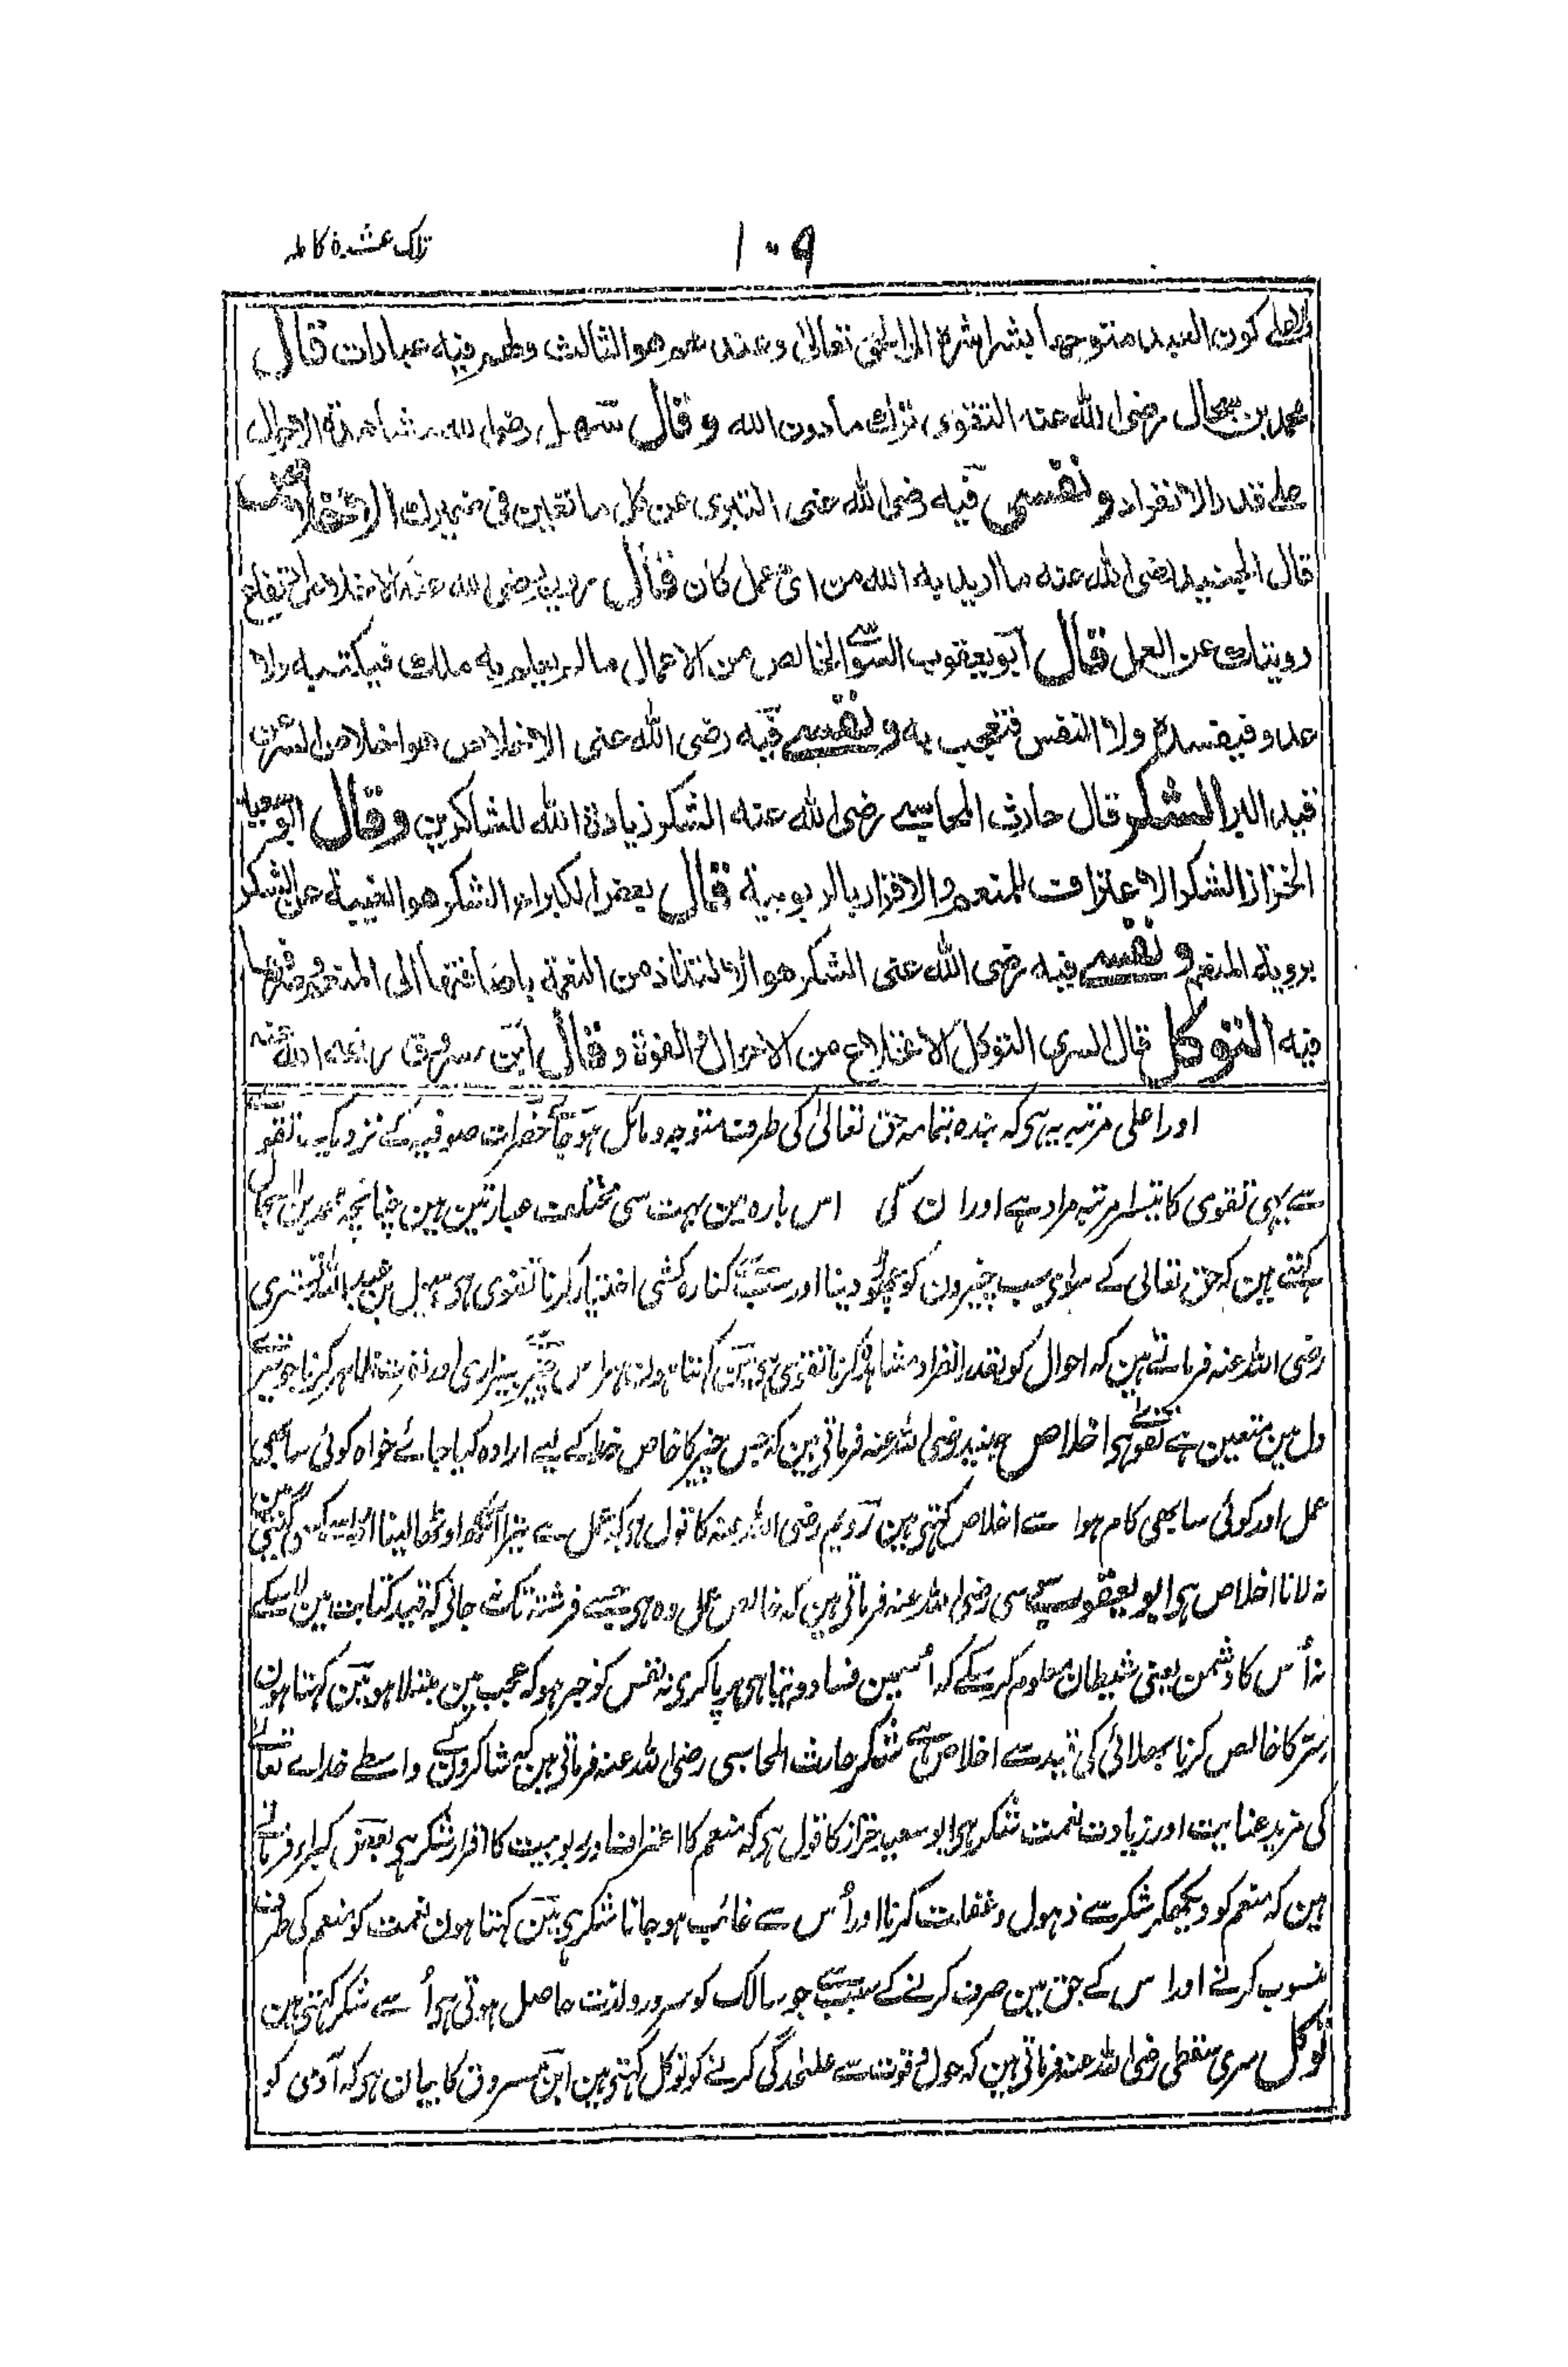 تلك عشرة كاملہ
١٠٩
كون العبد متوجها بشراشرة الى الحق تعالیٰ وعندهم هو الثالث ولهم فيه عبارات قال
محمد بن سنجال رضی الله عنه التقوى ترك مادون الله وقال سهل رضی الله مشاهدة الاحوال
على قدم الانفراد ونفسى فيه رضی الله عنى التبرى عن كل ما تعين فى ضميرك الاخلاص
قال الجنيد رضی الله عنه ما اريد به الله من ای عمل كان قال رويم رضی الله عنه الاخلاص ارتفاع
رويتك عن العمل قال ابو يعقوب السوسی الخالص من الاعمال مالم يعلم به ملك فيكتبه ولا
عدو فيفسده ولا النفس فتعجب به ونفسے فيه رضی الله عنى الاخلاص هو اخلاص السر عن
قيد البر الشكر قال حارث المحاسبے رضی الله عنه الشكر زيادة الله للشاكرين وقال ابو سعيد
الخزاز الشكر الاعتراف للمنعم والاقرار بالربوبية قال بعض الكبراء الشكر هو الغيبة عن الشكر
بروية المنعم ونفسے فيه رضی الله عنى الشكر هو الالتذاذ من النعمة باضافتها الى المنعم وصرفها
فيه التوكل قال السرى التوكل الانخلاع من الاحوال والقوة وقال ابن مسروق رضی الله عنه
اور اعلی مرتبہ یہ ہی کہ بندہ بتمامہ حق تعالیٰ کی طرف متوجہ و مائل ہو جائے حضرات صوفیہ کے نزدیک تقوے
سے یہی تقوی کا تیسرا مرتبہ مراد ہے اور ان کی اس بارہ مین بہت سی مختلف عبارتین ہین چنانچہ محمد بن سنجال
کہتے ہین کہ حق تعالی کے سوا سب چیزون کو چھوڑ دینا اور سب سے کنارہ کشی اختیار کرنا تقوی ہی سہیل بن عبد اللہ تستری
رضی اللہ عنہ فرماتے ہین کہ احوال کو بقدم انفراد مشاہدہ کرنا تقوی ہی مین کہتا ہون ہر اس چیز سے بیزاری اور نفرت ظاہر کرنا جو تیرے
دل مین متعین ہے تقوے ہی اخلاص جنید رضی اللہ عنہ فرماتی ہین کہ جس چیز کا خاص خدا کے لیے ارادہ کیا جائے خواہ کوئی سا بھی
عمل اور کوئی سا بھی کام ہو اسے اخلاص کہتی ہین رویم رضی اللہ عنہ کا قول ہی کہ عمل سے نظر اوٹھا لینا اور اسے گنتی مین
نہ لانا اخلاص ہی ابو یعقوب سوسی رضی اللہ عنہ فرماتی ہین کہ خالص عمل وہ ہی جسے فرشتہ تک نہ جانی کہ قید کتابت مین لا سکے
نہ اُس کا دشمن یعنی شیطان معلوم کر سکے کہ اُسمین فساد و تباہی برپا کری نہ نفس کو خبر ہو کہ عجب مین مبتلا ہو مین کہتا ہون
سِتر کا خالص کرنا بھلائی کی قید سے اخلاص ہے شکر حارث المحاسبی رضی اللہ عنہ فرماتی ہین کہ شاکرون کے واسطے خداے تعالےٰ
کی مزید عنایت اور زیادت نعمت شکر ہی ابو سعید خزاز کا قول ہی کہ منعم کا اعتراف اور ربوبیت کا اقرار شکر ہی بعض کبراء فرماتے
ہین کہ منعم کو دیکھکر شکر سے ذہول و غفلت کرنا اور اُس سے غائب ہو جانا شکر ہی مین کہتا ہون نعمت کو منعم کی طرف
منسوب کرنے اور اس کے حق مین صرف کرنے کے سبب سے جو سالک کو سرور ولذت حاصل ہوتی ہی اُسے شکر کہتی ہین
توکل سری سقطی رضی اللہ عنہ فرماتی ہین کہ حول و قوت سے علحدگی کرنے کو توکل کہتی ہین ابن مسروق کا بیان ہی کہ آدمی کو